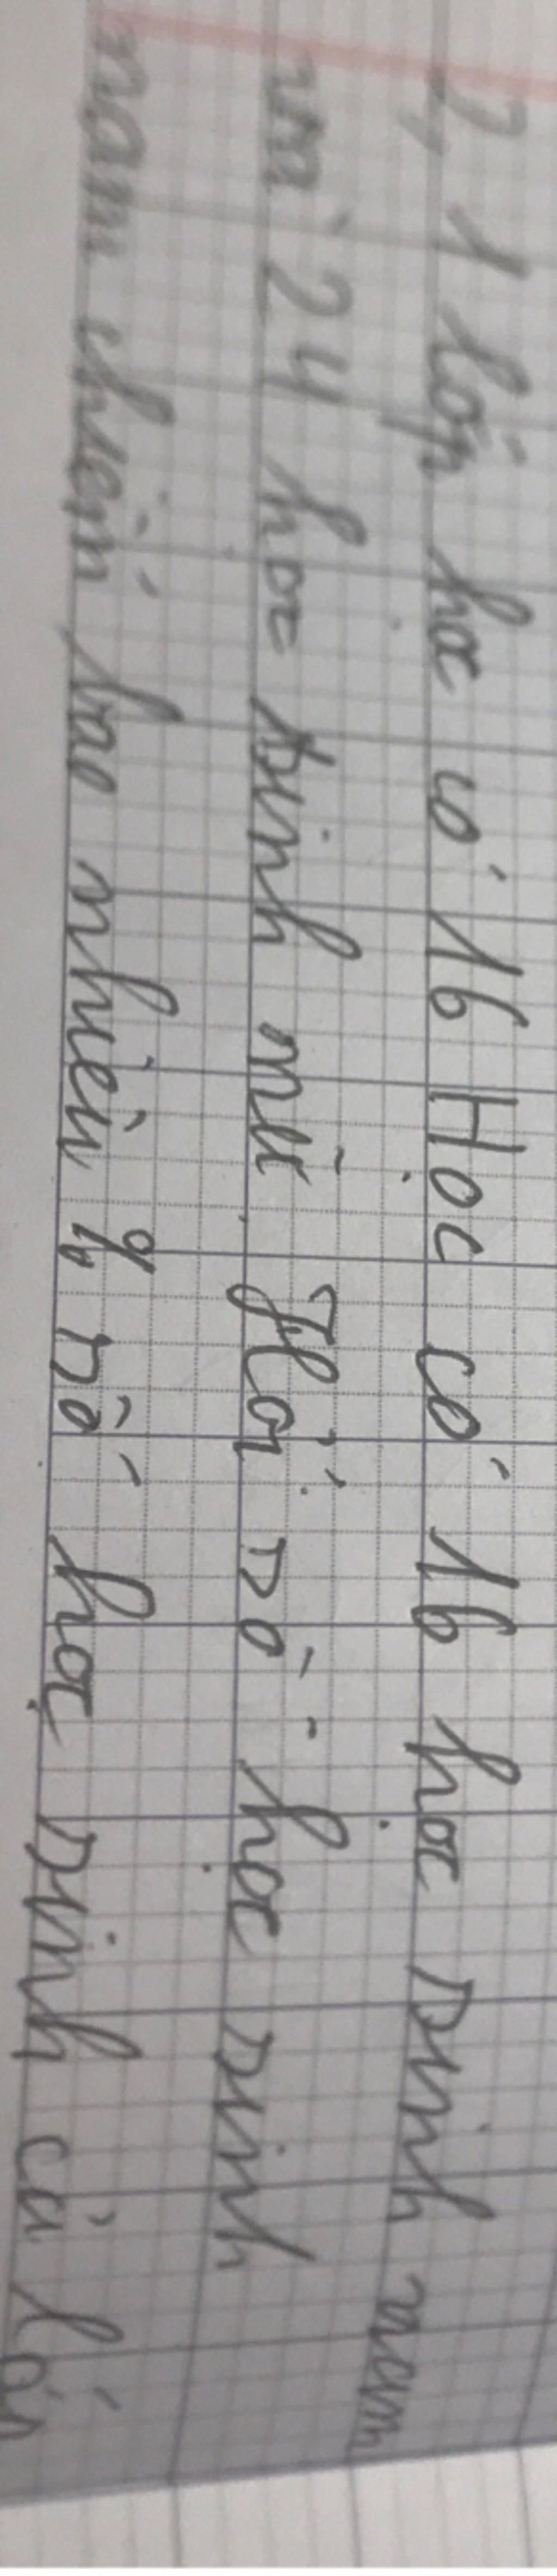 2, 1 lớp học có 16 Học có 16 học sinh nam
và 24 học sinh nữ. Hỏi số học sinh
nam chiếm bao nhiêu % số học sinh cả lớp